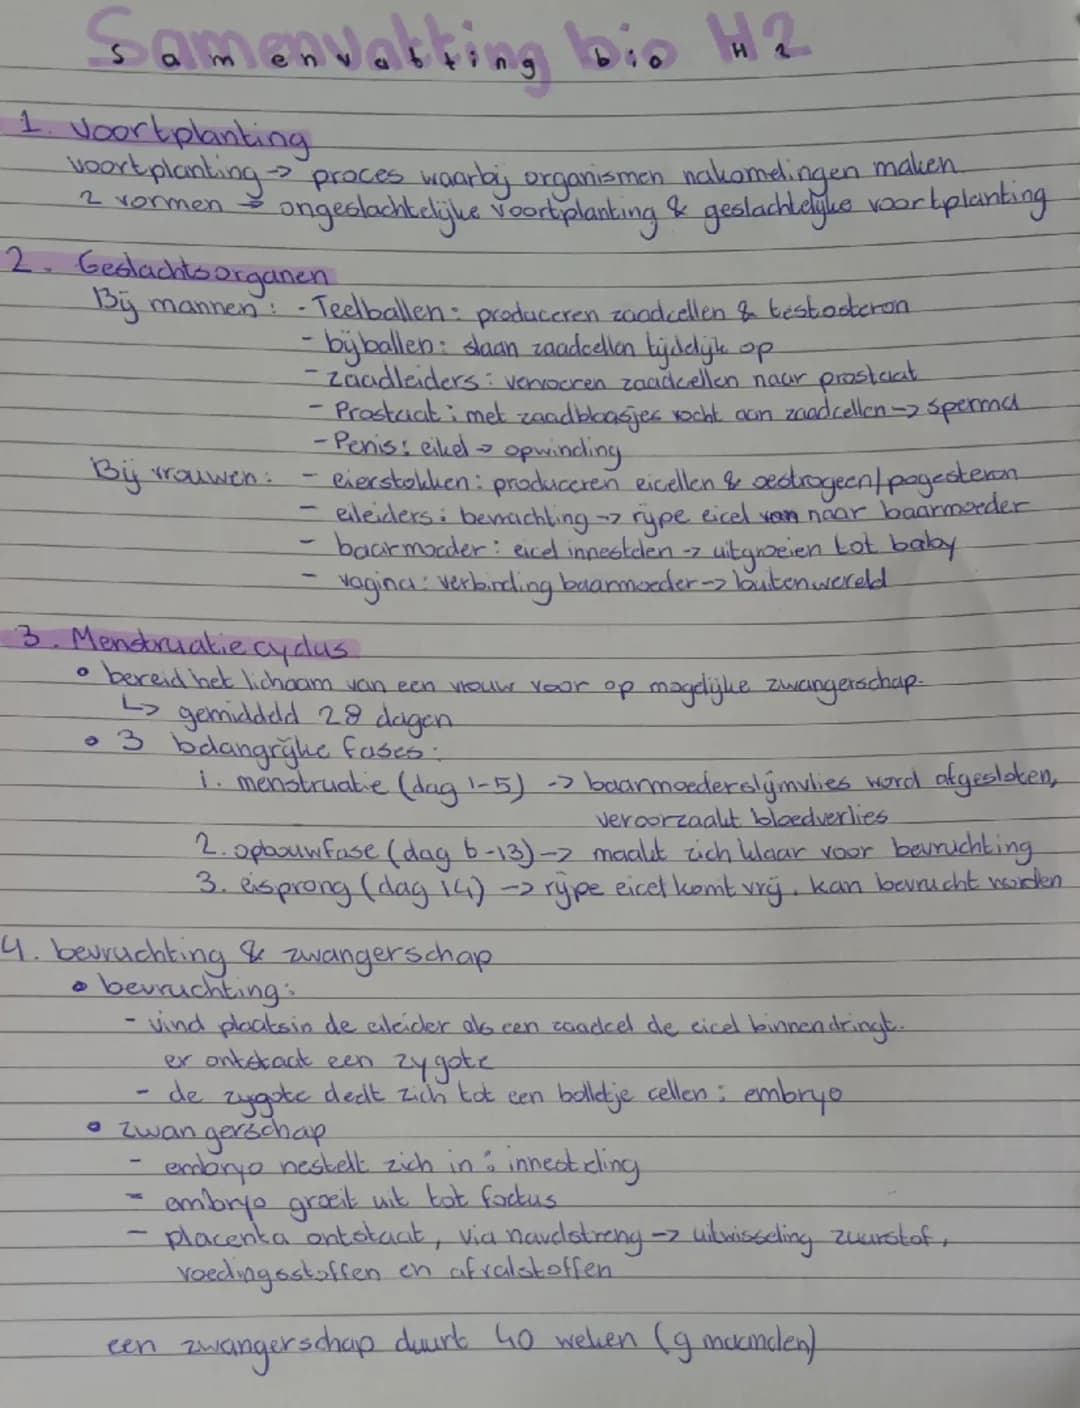 Samenvatting bio H2
1. Voortplanting
voortplanting -> proces waarbij organismen nakomelingen maken
2 vormen -> ongeslachtelijke voortplanting & geslachtelijke voortplanting
2. Geslachtsorganen
Bij mannen: - Teelballen: produceren zaadcellen & testosteron
- bijballen: slaan zaadcellen tijdelijk op
- zaadleiders: vervoeren zaadcellen naar prostaat
- Prostaat: met zaadblaasjes vocht aan zaadcellen -> sperma
- Penis: eikel -> opwinding
Bij vrouwen: - eierstokken: produceren eicellen & oestrogeen/pogesteron
- eileiders: bevruchting -> rijpe eicel naar baarmoeder
- baarmoeder: eicel innestelen -> uitgroeien tot baby
- vagina: verbinding baarmoeder -> buitenwereld
3. Menstruatie cyclus
• bereid het lichaam van een vrouw voor op mogelijke zwangerschap.
↳ gemiddeld 28 dagen
• 3 belangrijke fases:
1. menstruatie (dag 1-5) -> baarmoederslijmvlies word afgesloten,
veroorzaakt bloedverlies
2. opbouwfase (dag 6-13) -> maakt zich klaar voor bevruchting
3. eisprong (dag 14) -> rijpe eicel komt vrij, kan bevrucht worden
4. bevruchting & zwangerschap
• bevruchting:
- vind plaatsin de eileider als een zaadcel de eicel binnendringt.
er ontstaat een zygote
- de zygote deelt zich tot een bolletje cellen: embryo
• zwangerschap
- embryo nestelt zich in: innesteling
- embryo groeit uit tot foetus
- placenta ontstaat, via navelstreng -> uitwisseling zuurstof,
voedingsstoffen en afvalstoffen
een zwangerschap duurt 40 weken (9 maanden)